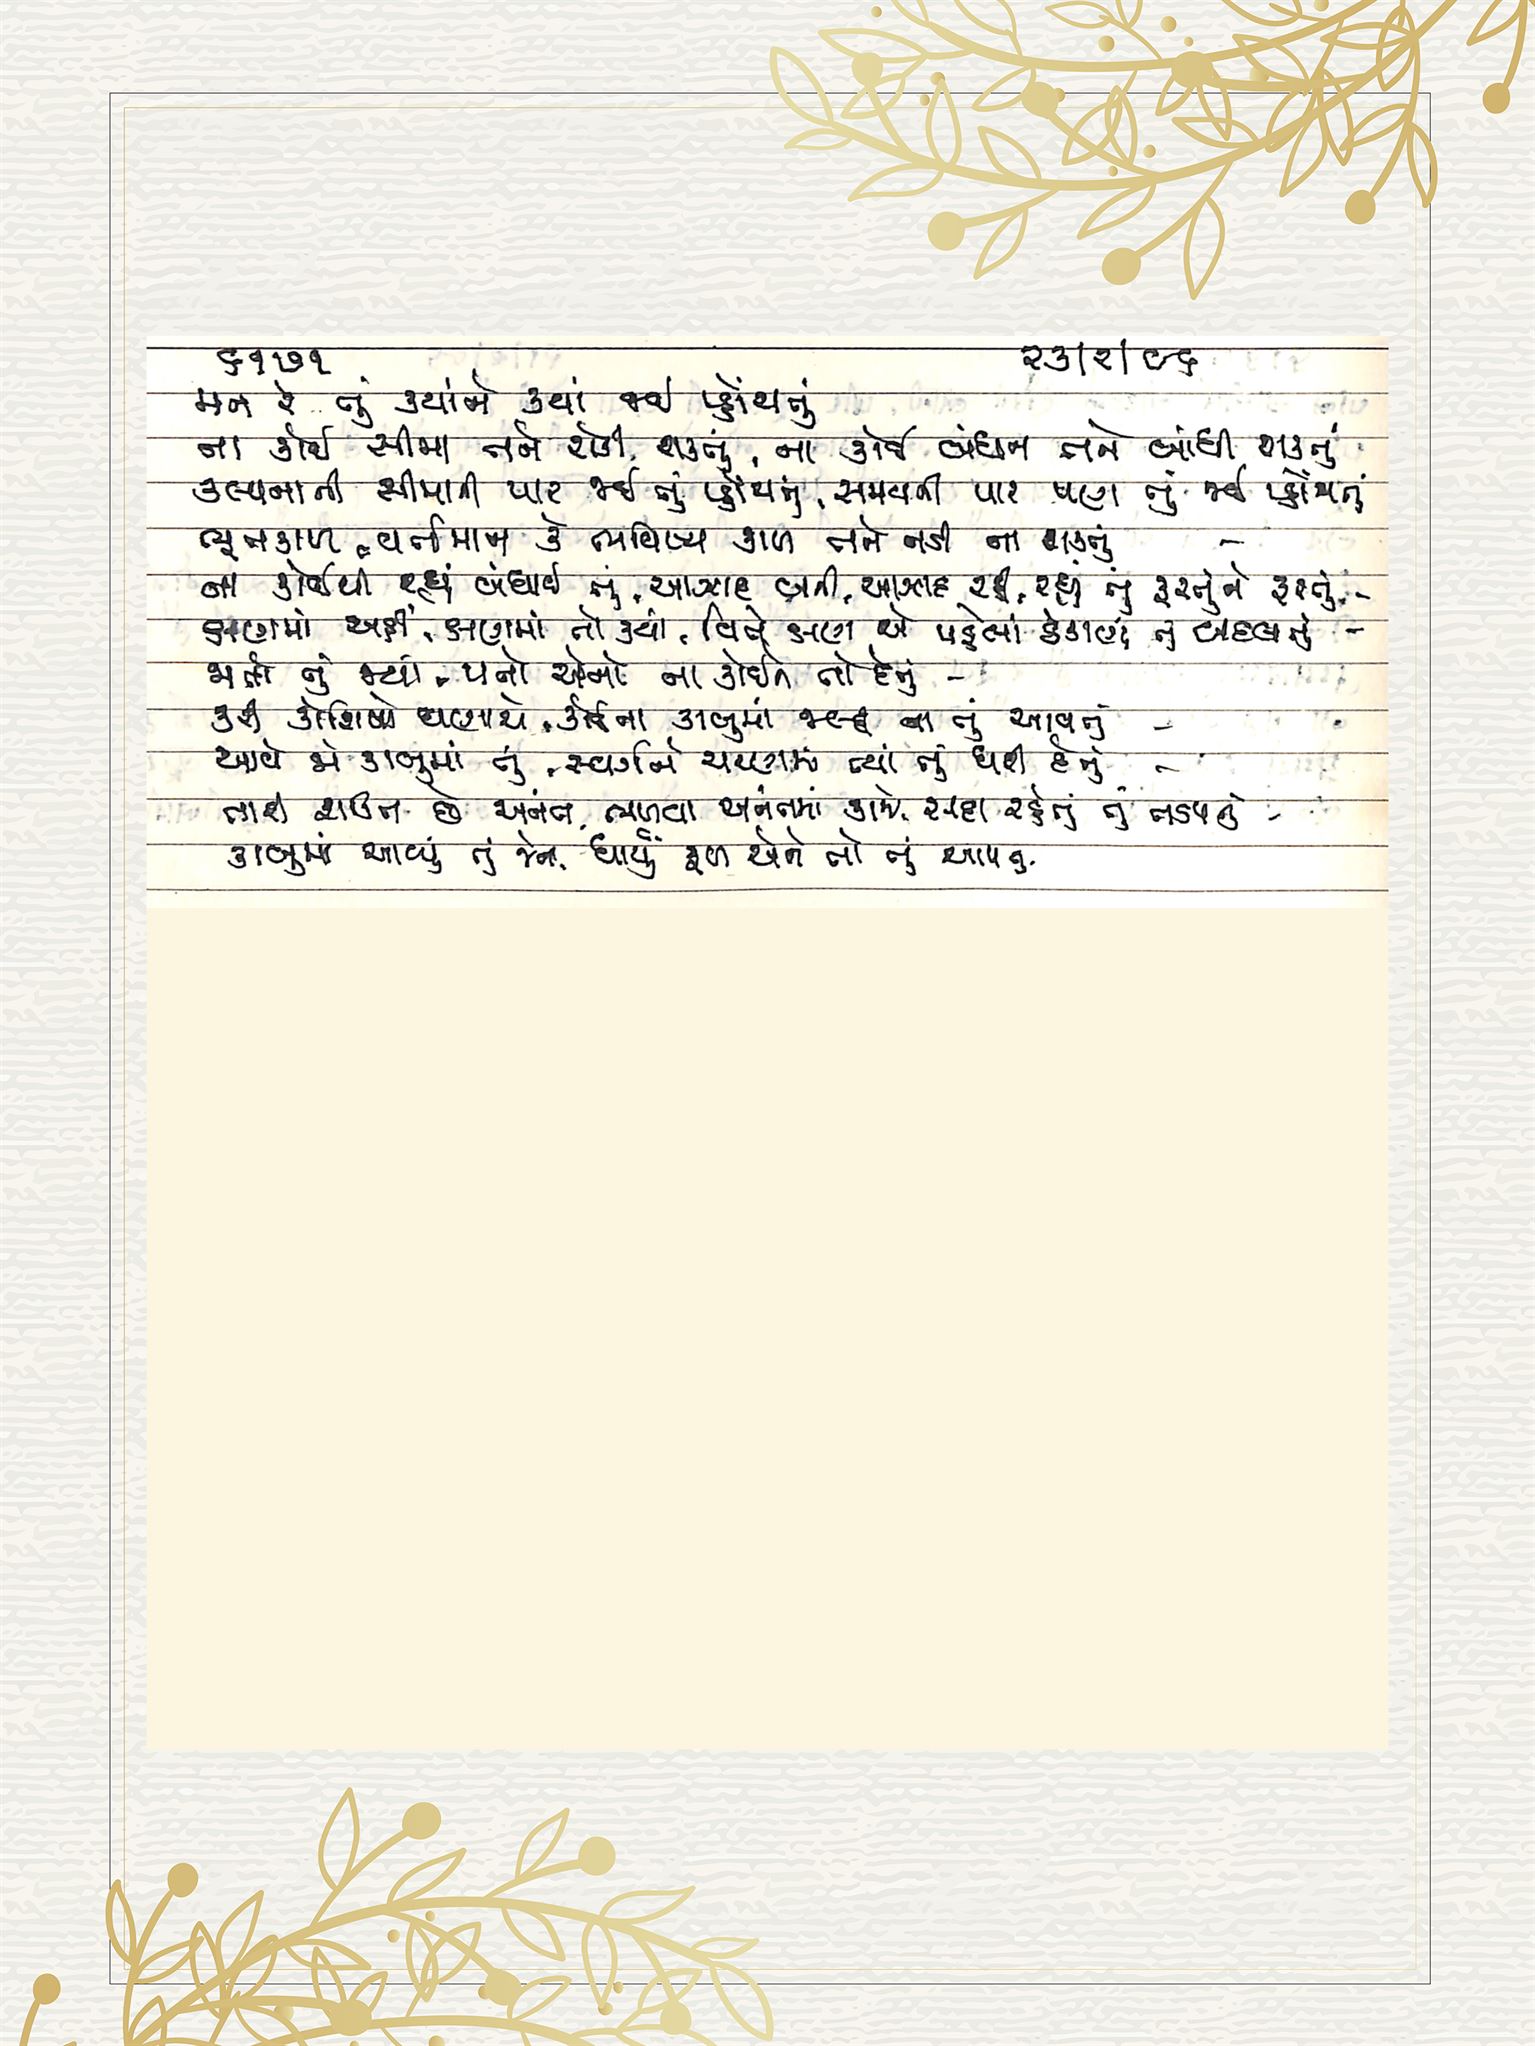 ૬૧૭૧ ૨૩/૨/૮૬
મન રે તું ક્યાંને ક્યાં જઈ પ્હોંચતું
ના કોઈ સીમા તને રોકી શકતું, ના કોઈ બંધન તને બાંધી શકતું
કલ્પનાની સીમાની પાર જઈ તું પ્હોંચતું, સમયની પાર પણ તું જઈ પ્હોંચતું
ભૂતકાળ, વર્તમાન કે ભવિષ્ય કાળ તને નડી ના શકતું -
ના કોઈથી રહ્યું બંધાઈ તું, આઝાદ બની, આઝાદ રહી, રહ્યું તું ફરતુંને ફરતું -
ક્ષણમાં અહીં, ક્ષણમાં તો ક્યાં, વિતે ક્ષણ એ પહેલાં ઠેકાણું તું બદલતું -
ભાગે તું જ્યાં, પત્તો એનો ના કોઈને તો દેતું -
કરી કોશિષો ઘણાયે, કોઈના કાબુમાં જલ્દી ના તું આવતું -
આવે જો કાબુમાં તું, સ્વર્ગને ચરણમાં ત્યાં તું ધરી દેતું -
તારી શક્તિ છે અનંત, ભળવા અનંતમાં કાજે, સદા રહેતું તું તડપતું -
કાબુમાં આવ્યું તું જેના, ધાર્યું ફળ એને તો તું આપતું.